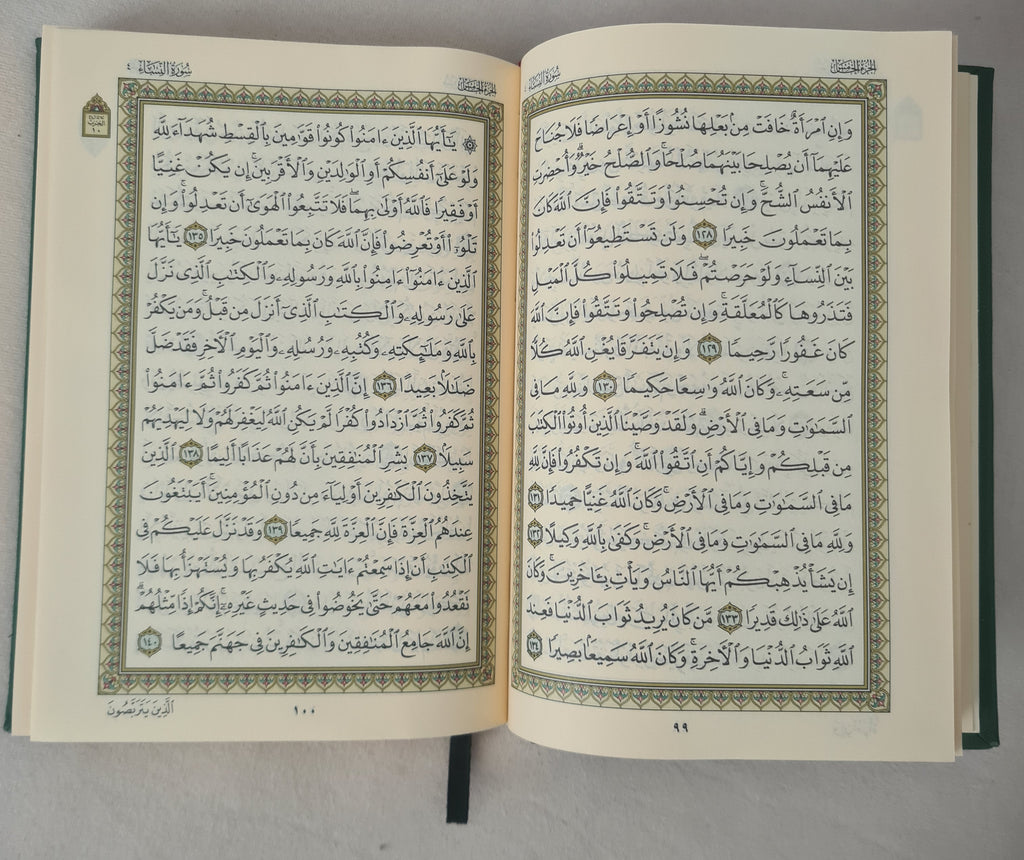 الجُزْءُ الخَامِسُ
سُورَةُ النِّسَاءِ
وَإِنِ ٱمْرَأَةٌ خَافَتْ مِنۢ بَعْلِهَا نُشُوزًا أَوْ إِعْرَاضًا فَلَا جُنَاحَ
عَلَيْهِمَآ أَن يُصْلِحَا بَيْنَهُمَا صُلْحًاۚ وَٱلصُّلْحُ خَيْرٌۗ وَأُحْضِرَتِ
ٱلْأَنفُسُ ٱلشُّحَّۚ وَإِن تُحْسِنُوا۟ وَتَتَّقُوا۟ فَإِنَّ ٱللَّهَ كَانَ
بِمَا تَعْمَلُونَ خَبِيرًا ١٢٨ وَلَن تَسْتَطِيعُوٓا۟ أَن تَعْدِلُوا۟
بَيْنَ ٱلنِّسَآءِ وَلَوْ حَرَصْتُمْۖ فَلَا تَمِيلُوا۟ كُلَّ ٱلْمَيْلِ
فَتَذَرُوهَا كَٱلْمُعَلَّقَةِۚ وَإِن تُصْلِحُوا۟ وَتَتَّقُوا۟ فَإِنَّ ٱللَّهَ
كَانَ غَفُورًا رَّحِيمًا ١٢٩ وَإِن يَتَفَرَّقَا يُغْنِ ٱللَّهُ كُلًّا
مِّن سَعَتِهِۦۚ وَكَانَ ٱللَّهُ وَٰسِعًا حَكِيمًا ١٣٠ وَلِلَّهِ مَا فِى
ٱلسَّمَٰوَٰتِ وَمَا فِى ٱلْأَرْضِۗ وَلَقَدْ وَصَّيْنَا ٱلَّذِينَ أُوتُوا۟ ٱلْكِتَٰبَ
مِن قَبْلِكُمْ وَإِيَّاكُمْ أَنِ ٱتَّقُوا۟ ٱللَّهَۚ وَإِن تَكْفُرُوا۟ فَإِنَّ لِلَّهِ
مَا فِى ٱلسَّمَٰوَٰتِ وَمَا فِى ٱلْأَرْضِۚ وَكَانَ ٱللَّهُ غَنِيًّا حَمِيدًا ١٣١
وَلِلَّهِ مَا فِى ٱلسَّمَٰوَٰتِ وَمَا فِى ٱلْأَرْضِۚ وَكَفَىٰ بِٱللَّهِ وَكِيلًا ١٣٢
إِن يَشَأْ يُذْهِبْكُمْ أَيُّهَا ٱلنَّاسُ وَيَأْتِ بِـَٔاخَرِينَۚ وَكَانَ
ٱللَّهُ عَلَىٰ ذَٰلِكَ قَدِيرًا ١٣٣ مَّن كَانَ يُرِيدُ ثَوَابَ ٱلدُّنْيَا فَعِندَ
ٱللَّهِ ثَوَابُ ٱلدُّنْيَا وَٱلْأَخِرَةِۚ وَكَانَ ٱللَّهُ سَمِيعًۢا بَصِيرًا ١٣٤
٩٩
الجُزْءُ الخَامِسُ
سُورَةُ النِّسَاءِ ٤
۞ يَٰٓأَيُّهَا ٱلَّذِينَ ءَامَنُوا۟ كُونُوا۟ قَوَّٰمِينَ بِٱلْقِسْطِ شُهَدَآءَ لِلَّهِ
وَلَوْ عَلَىٰٓ أَنفُسِكُمْ أَوِ ٱلْوَٰلِدَيْنِ وَٱلْأَقْرَبِينَۚ إِن يَكُنْ غَنِيًّا
أَوْ فَقِيرًا فَٱللَّهُ أَوْلَىٰ بِهِمَاۖ فَلَا تَتَّبِعُوا۟ ٱلْهَوَىٰٓ أَن تَعْدِلُوا۟ۚ وَإِن
تَلْوُۥٓا۟ أَوْ تُعْرِضُوا۟ فَإِنَّ ٱللَّهَ كَانَ بِمَا تَعْمَلُونَ خَبِيرًا ١٣٥ يَٰٓأَيُّهَا
ٱلَّذِينَ ءَامَنُوٓا۟ ءَامِنُوا۟ بِٱللَّهِ وَرَسُولِهِۦ وَٱلْكِتَٰبِ ٱلَّذِى نَزَّلَ
عَلَىٰ رَسُولِهِۦ وَٱلْكِتَٰبِ ٱلَّذِىٓ أَنزَلَ مِن قَبْلُۚ وَمَن يَكْفُرْ
بِٱللَّهِ وَمَلَٰٓئِكَتِهِۦ وَكُتُبِهِۦ وَرُسُلِهِۦ وَٱلْيَوْمِ ٱلْأَخِرِ فَقَدْ ضَلَّ
ضَلَٰلًۢا بَعِيدًا ١٣٦ إِنَّ ٱلَّذِينَ ءَامَنُوا۟ ثُمَّ كَفَرُوا۟ ثُمَّ ءَامَنُوا۟
ثُمَّ كَفَرُوا۟ ثُمَّ ٱزْدَادُوا۟ كُفْرًا لَّمْ يَكُنِ ٱللَّهُ لِيَغْفِرَ لَهُمْ وَلَا لِيَهْدِيَهُمْ
سَبِيلًۢا ١٣٧ بَشِّرِ ٱلْمُنَٰفِقِينَ بِأَنَّ لَهُمْ عَذَابًا أَلِيمًا ١٣٨ ٱلَّذِينَ
يَتَّخِذُونَ ٱلْكَٰفِرِينَ أَوْلِيَآءَ مِن دُونِ ٱلْمُؤْمِنِينَۚ أَيَبْتَغُونَ
عِندَهُمُ ٱلْعِزَّةَ فَإِنَّ ٱلْعِزَّةَ لِلَّهِ جَمِيعًا ١٣٩ وَقَدْ نَزَّلَ عَلَيْكُمْ فِى
ٱلْكِتَٰبِ أَنْ إِذَا سَمِعْتُمْ ءَايَٰتِ ٱللَّهِ يُكْفَرُ بِهَا وَيُسْتَهْزَأُ بِهَا فَلَا
تَقْعُدُوا۟ مَعَهُمْ حَتَّىٰ يَخُوضُوا۟ فِى حَدِيثٍ غَيْرِهِۦٓۚ إِنَّكُمْ إِذًا مِّثْلُهُمْۗ
إِنَّ ٱللَّهَ جَامِعُ ٱلْمُنَٰفِقِينَ وَٱلْكَٰفِرِينَ فِى جَهَنَّمَ جَمِيعًا ١٤٠
١٠٠
ٱلَّذِينَ يَتَرَبَّصُونَ
الحزب
١٠